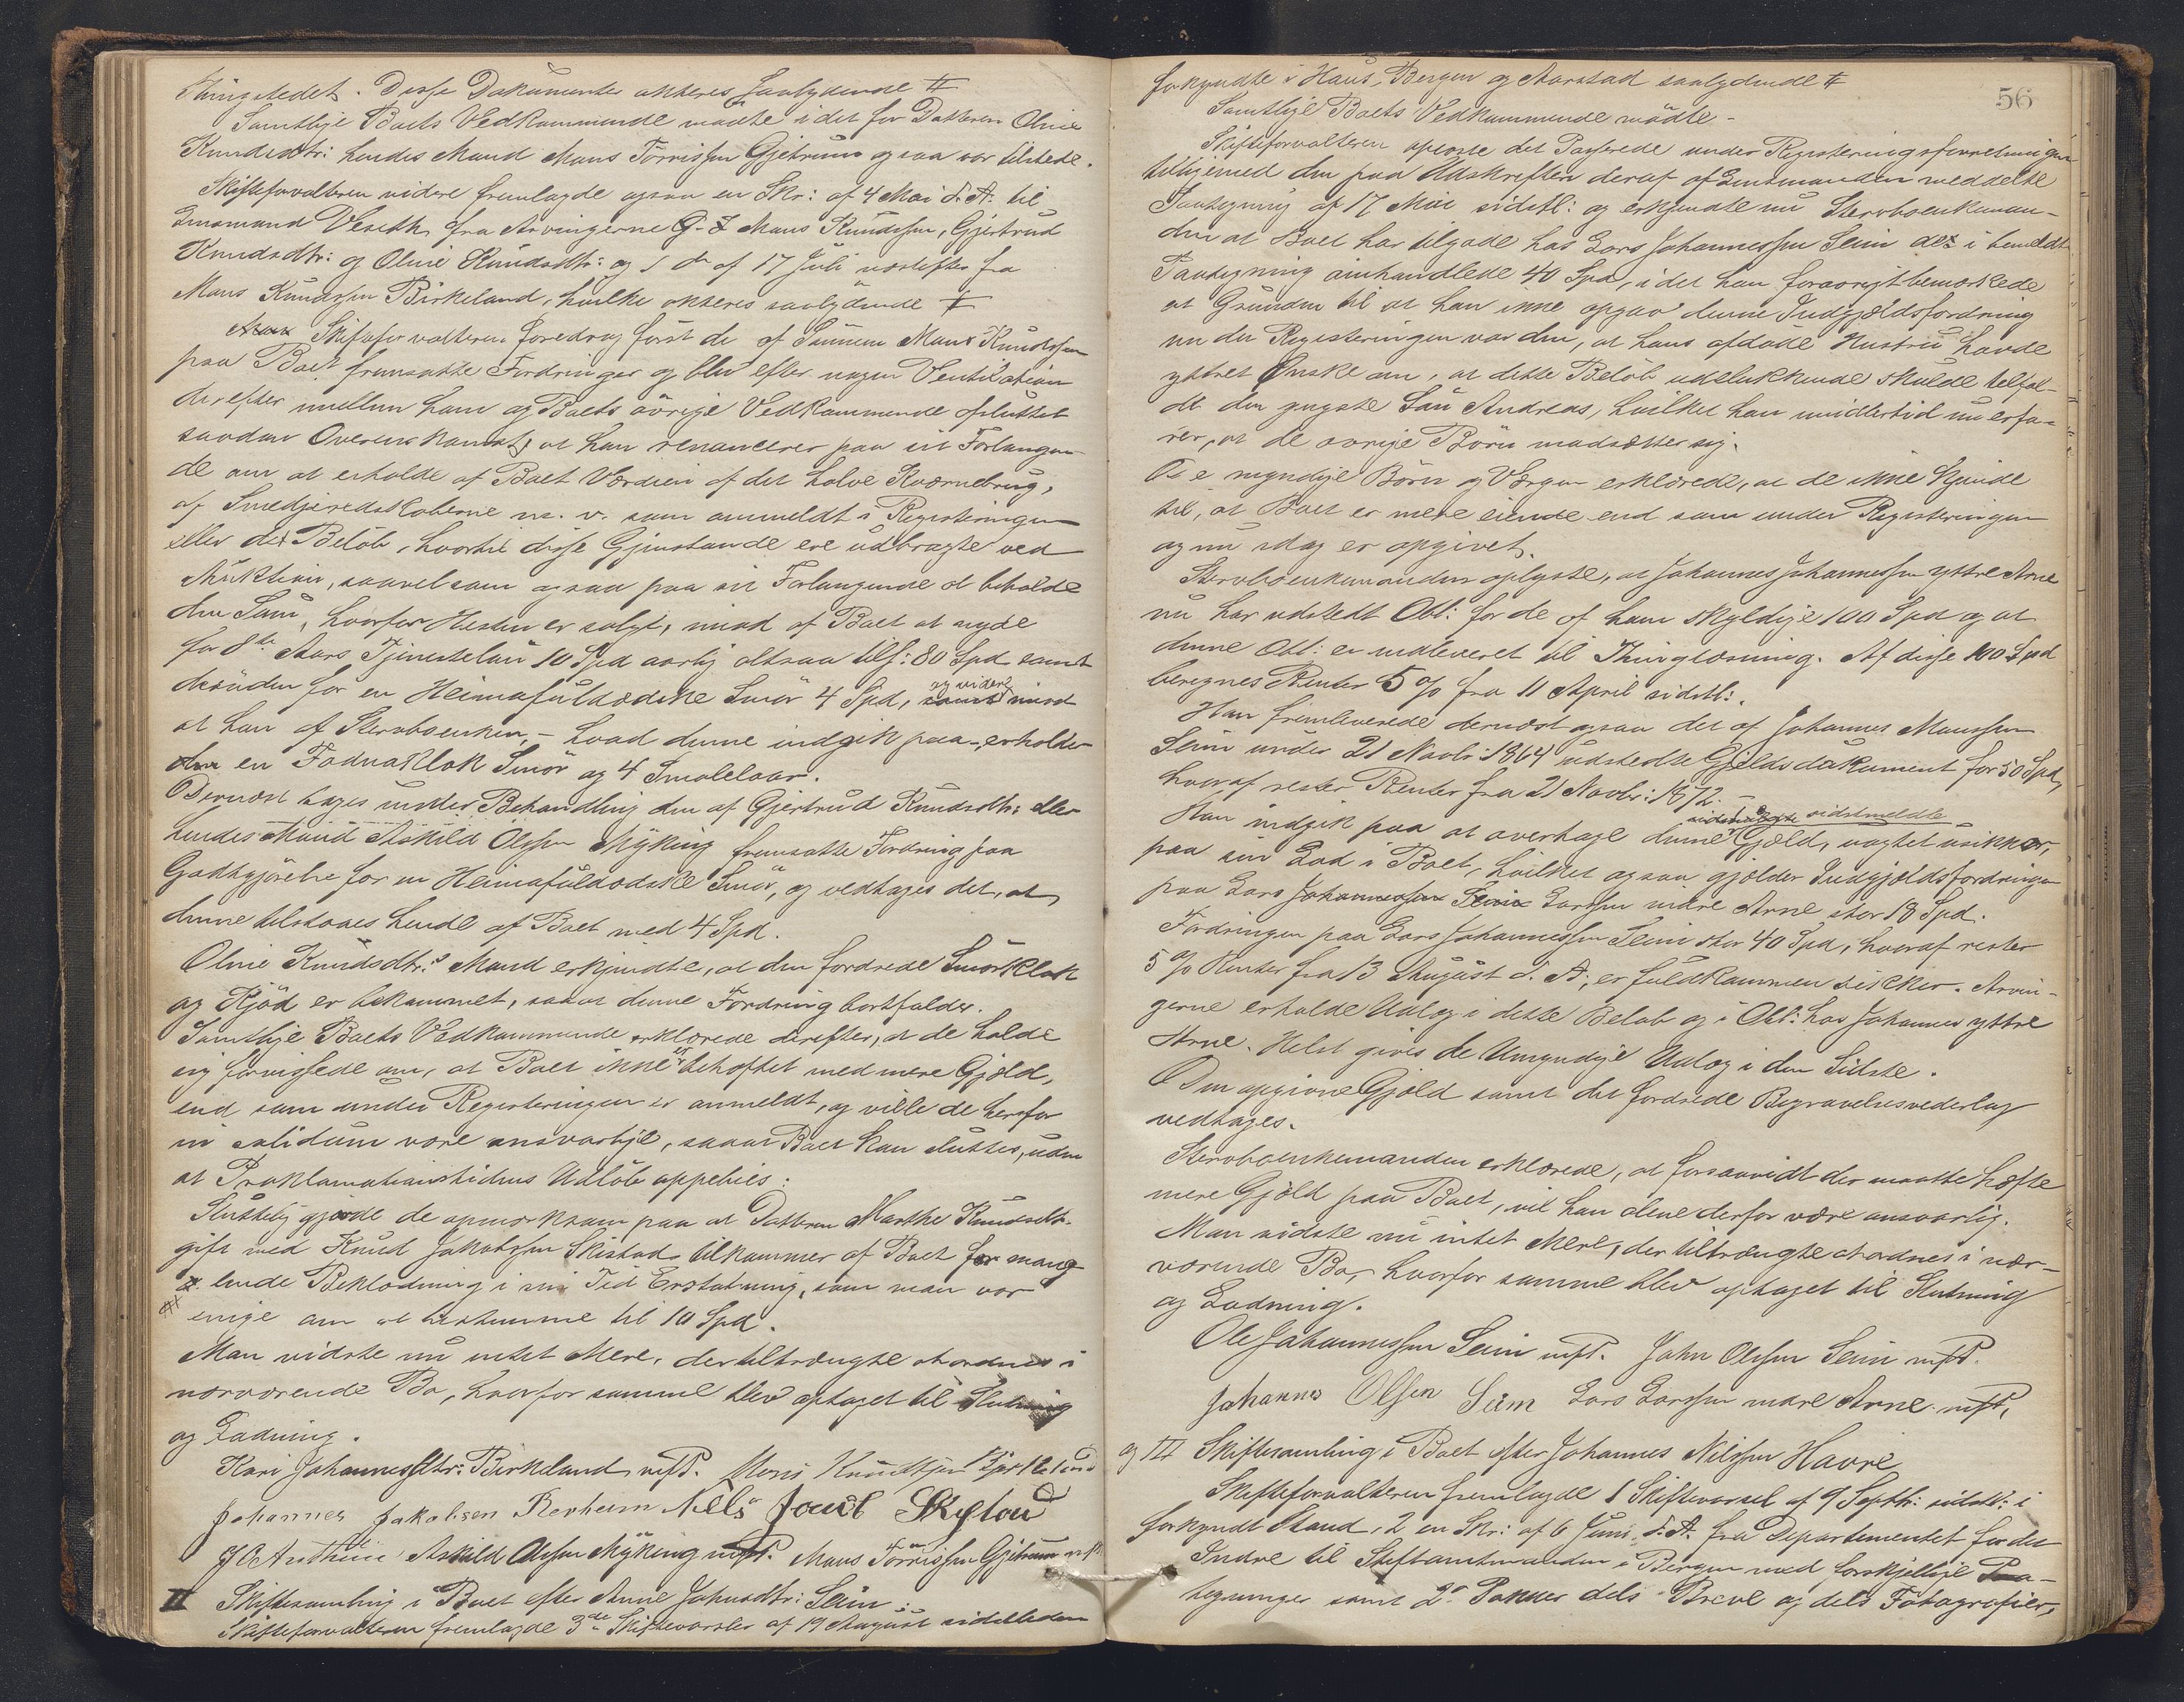 Thingstedet. Disse Dokumenter akteres saalydende #
Samtlige Boets Vedkommende mødte idet for Datteren Oline
Knudsdtr: hendes Mand Mons Torrissen Gjetrum ogsaa var tilstede.
Skifteforvalteren videre fremlagde ogsaa en Skr: af 4 Mai d. A. til
Lensmand Veseth fra Arvingerne Mons Knudssen, Gjertrud
Knudsdtr: og Oline Knudsdtr: og 1 do af 17 Juli næstefter fra
Mons Knudssen Birkeland, hvilke akteres saalydende #
Skifteforvalteren foredrog først de af Sønnen Mons Knudssen
paa Boet fremsatte Fordringer og blev efter nogen Ventilation
derefter imellem ham og Boets øvrige Vedkommende afsluttet
saadan Overenskomst, at han renoncerer paa sit Forlangen-
de om at erholde af Boet Værdien af det halve Kværnebrug,
af Smedjeredskaberne m. v. som anmeldt i Registeringen
eller det Beløb, hvortil disse Gjenstande ere udbragte ved
Auktion, saavelsom ogsaa paa sit Forlangende at beholde
den Sum, hvorfor Hesten er solgt, imod af Boet at nyde
for 8te Aars Tjenesteløn 10 Spd aarlig altsaa tils: 80 Spd samt
desuden for en Heimafuldødske Smør 4 Spd, og videre imod
at han af Sterboenken, - hvad denne indgik paa - erholder
en Fadnaklak Smør og 4 Smalelaar.
Dernæst toges under Behandling den af Gjertrud Knudsdtr: eller
hendes Mand Askild Olssen Myking fremsatte Fordring paa
Godtgjørelse for en Heimafuldødske Smør, og vedtoges det, at
denne tilstaaes hende af Boet med 4 Spd.
Oline Knudsdtr:s Mand erkjendte, at den fordrede Smørklak
og Kjød er bekommet, saaat denne Fordring bortfalder.
Samtlige Boets Vedkommende erklærede derefter, at de holde
sig forvissede om, at Boet ikke er behæftet med mere Gjæld,
end som under Registeringen er anmeldt, og ville de herfor
in solidum være ansvarlige, saaat Boet kan sluttes, uden
at Proklamationstidens Udløb oppebies:
Sluttelig gjorde de opmerksom paa at Datteren Marthe Knudsdtr.
gift med Knud Jakobssen Skistad tilkommer af Boet for mang-
lende Beklædning i sin Tid Erstatning, som man var
enige om at bestemme til 10 Spd.
Man vidste nu intet Mere, der tiltrængte at ordnes i
nærværende Bo, hvorfor samme blev optaget til Slutning
og Lodning.
Kari Johannesdtr: Birkeland mfP. Mons Knudtsen Birkeland
Johannes Jakobsen Revheim Nels
Askild Olssen Myking mfP. Mons Torrissen Gjetrum mfP.
II Skiftesamling i Boet efter Anne Johnsdtr: Seim:
Skifteforvalteren fremlagde 3de Skiftevarsler af 19 August sidstleden
56
forkyndte i Haus, Bergen og Aarstad saalydende #
Samtlige Boets Vedkommende mødte -
Skifteforvalteren oplæste det Passerede under Registeringsforretningen
tilligemed den paa Udskriften deraf af Lensmanden meddelte
Paategning af 17 Mai sidstl: og erkjendte nu Sterboenkeman-
den at Boet har tilgode hos Lars Johannessen Seim de i bemeldte
Paategning omhandlede 40 Spd, idet han forøvrigt bemærkede
at Grunden til at han ikke opgav denne Indgjældsfordring
under Registeringen var den, at hans afdøde Hustru havde
yttret Ønske om, at dette Beløb udelukkende skulde tilfal-
de den yngste Søn Andreas, hvilket han imidlertid nu erfa-
rer, at de øvrige Børn modsætter sig.
De myndige Børn og Værgen erklærede, at de ikke kjende
til, at Boet er mere eiende end som under Registeringen
og nu idag er opgivet.
Sterboenkemanden oplyste, at Johannes Johannessen yttre Arne
nu har udstedt Obl: for de af ham skyldige 100 Spd og at
denne Obl: er indleveret til Thinglæsning. Af disse 100 Spd
beregnes Renter 5 % fra 11 April sidstl:.
Han fremleverede dernæst ogsaa det af Johannes Monssen
Seim under 21 Novbr: 1864 udstedte Gjeldsdokument for 50 Spd,
hvoraf rester Renter fra 21 Novbr: 1872. -
Han indgik paa at overtage denne sidstmeldte Gjæld, uagtet usikker,
paa sin Lod i Boet, hvilket ogsaa gjælder Indgjældsfordringen
paa Lars Larssen indre Arne stor 18 Spd.
Fordringen paa Lars Johannessen Seim stor 40 Spd, hvoraf rester
5 % Renter fra 13 August d. A, er fuldkommen sikker. Arvin-
gerne erholde Udlæg i dette Beløb og i Obl: hos Johannes yttre
Arne. Helst gives de Umyndige Udlæg i den Sidste.
Den opgivne Gjæld samt det fordrede Begravelsesvederlag
vedtoges.
Sterboenkemanden erklærede, at forsaavidt der maatte hæfte
mere Gjæld paa Boet, vil han alene derfor være ansvarlig.
Man vidste nu intet Mere, der tiltrængte at ordnes i nær-
værende Bo, hvorfor samme blev optaget til Slutning
og Lodning.
Ole Johannessen Seim mfP. John Olssen Seim mfP.
Johannes Olsen Seim Lars Larssen indre Arne mfP.
og III Skiftesamling i Boet efter Johannes Nilssen Havre
Skifteforvalteren fremlagde 1 Skiftevarsel af 9 Septbr: sidstl: i
forkyndt Stand, 2 en Skr: af 6 Juni d. A. fra Departementet for det
Indre til Stiftamtmanden i Bergen med forskjellige Paa-
tegninger samt 2de Pakker dels Breve og dels Fotografier,